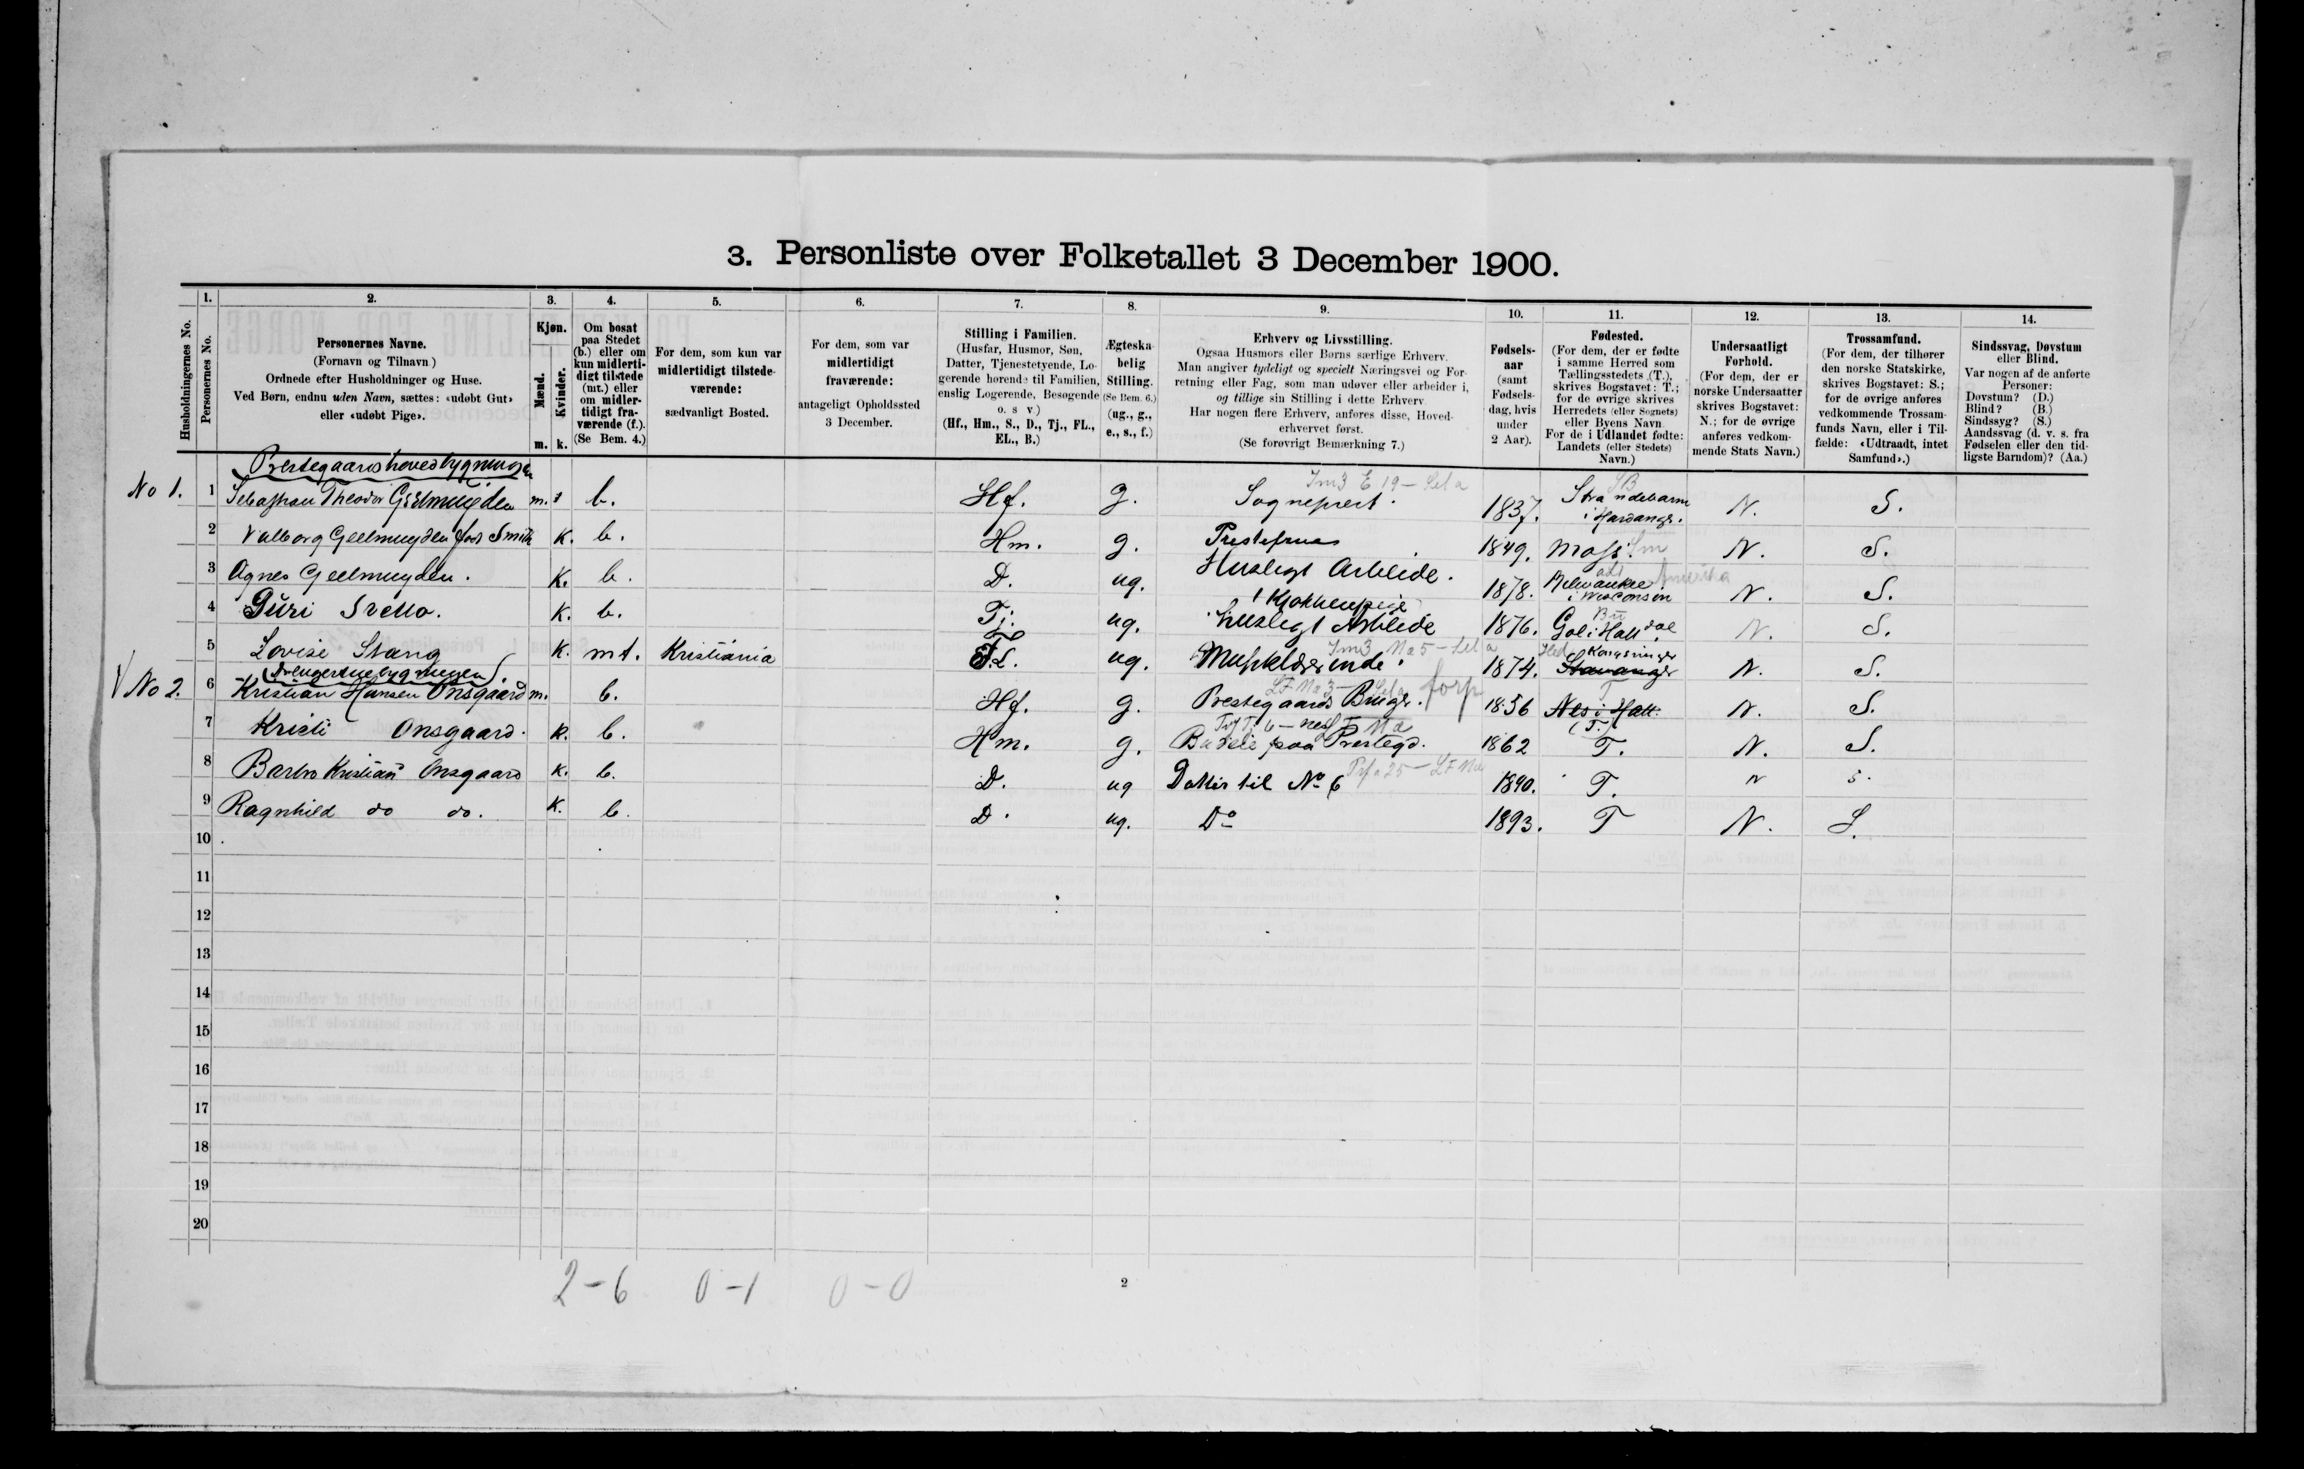 3. Personliste over Folketallet 3 December 1900.
Husholdningernes No.
1.
Personernes No.
2.
Personernes Navne.
(Fornavn og Tilnavn)
Ordnede efter Husholdninger og Huse.
Ved Børn, endnu uden Navn, sættes: «udøbt Gut»
eller «udøbt Pige».
3.
Kjøn.
Mænd.
Kvinder.
m. k.
4.
Om bosat
paa Stedet
(b.) eller om
kun midlerti-
digt tilstede
(mt.) eller
om midler-
tidigt fra-
værende (f.).
(Se Bem. 4.)
5.
For dem, som kun var
midlertidigt tilstede-
værende:
sædvanligt Bosted.
6.
For dem, som var
midlertidigt
fraværende:
antageligt Opholdssted
3 December.
7.
Stilling i Familien.
(Husfar, Husmor, Søn,
Datter, Tjenestetyende, Lo-
gerende hørende til Familien,
enslig Logerende, Besøgende
o. s v.)
(Hf., Hm., S., D., Tj., FL.,
EL., B.)
8.
Ægteska-
belig
Stilling.
(Se Bem. 6.)
(ug., g.,
e., s., f.)
9.
Erhverv og Livsstilling.
Ogsaa Husmors eller Børns særlige Erhverv.
Man angiver tydeligt og specielt Næringsvei og For-
retning eller Fag, som man udøver eller arbeider i,
og tillige sin Stilling i dette Erhverv.
Har nogen flere Erhverv, anføres disse, Hoved-
erhvervet først.
(Se forøvrigt Bemærkning 7.)
10.
Fødsels-
aar
(samt
Fødsels-
dag, hvis
under
2 Aar).
11.
Fødested.
(For dem, der er fødte
i samme Herred som
Tællingsstedets (T.),
skrives Bogstavet: T.;
for de øvrige skrives
Herredets (eller Sognets)
eller Byens Navn
For de i Udlandet fødte:
Landets (eller Stedets)
Navn.)
12.
Undersaatligt
Forhold.
(For dem, der er
norske Undersaatter
skrives Bogstavet:
N.; for de øvrige
anføres vedkom-
mende Stats Navn.)
13.
Trossamfund.
(For dem, der tilhører
den norske Statskirke,
skrives Bogstavet: S.;
for de øvrige anføres
vedkommende Trossam-
funds Navn, eller i Til-
fælde: «Udtraadt, intet
Samfund».)
14.
Sindssvag, Døvstum
eller Blind.
Var nogen af de anførte
Personer:
Døvstum? (D.)
Blind? (B.)
Sindssyg? (S.)
Aandssvag (d. v. s. fra
Fødselen eller den tid-
ligste Barndom)? (Aa.)
Prestegaards hovedbygningen
No 1. 1 Sebastian Theodor Geelmuyden m. b. Hf. g. Sogneprest. 1837. Strandebarm i Hardangr. N. S.
2 Valborg Geelmuyden fød Smith k. b. Hm. g. Prestefrue 1849. Moss. N. S.
3 Agnes Geelmuyden. k. b. D. ug. Husligt Arbeide. 1878. Milwaukee i Wisconsin Amerika N. S.
4 Guri Svello. k. b. Tj. ug. Kjøkkenpige Husligt Arbeide 1876. Gol i Halldal N. S.
5 Lovise Stang k. mt. Kristiania F.L. ug. Musiklærerinde. 1874. Stavanger Kongsvinger N. S.
Drengestuebygningen.
No 2. 6 Kristian Hansen Onsgaard m. b. Hf. g. Prestegaards Brugr. forp 1856 Nes i Hall. (T.) N. S.
7 Kristi Onsgaard. k. b. Hm. g. Budeie paa Prestegd. 1862 T. N. S.
8 Barbro Kristians Onsgaard k. b. D. ug Datter til No 6 1890. T. N S.
9 Ragnhild do do. k. b. D. ug. Do 1893. T N. S.
10
11
12
13
14
15
16
17
18
19
20
2-6 0-1 0-0
2